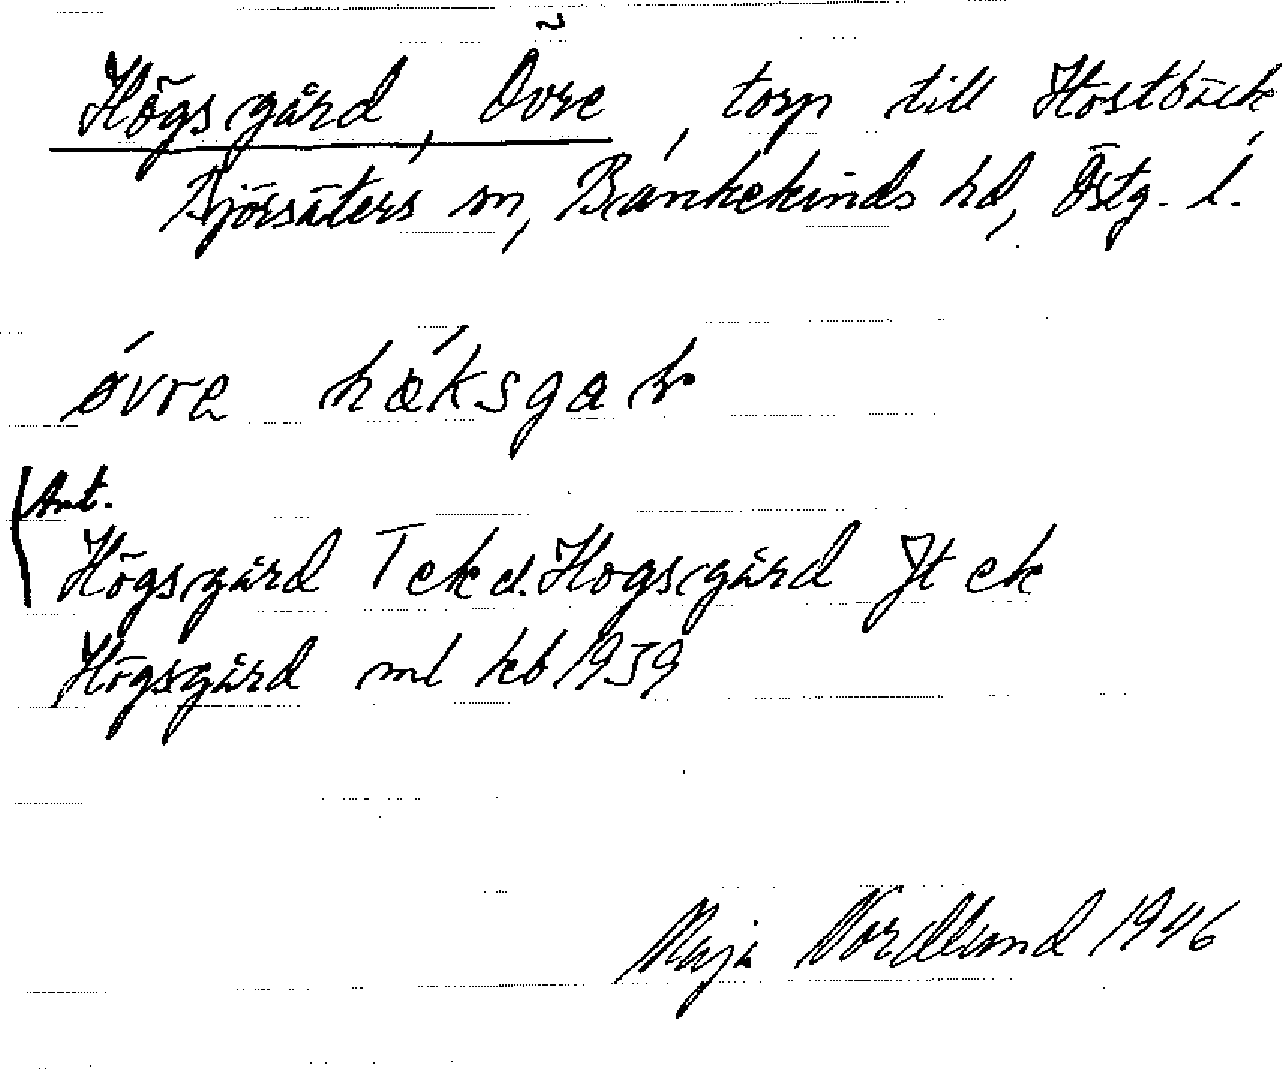 Högsgård, Övre, torp till Höstbäck
Björsäters sn, Bankekinds hd, Östg. l.
øvre hæksgar
Ant.
Högsgård T ek d. Hogsgård Jt ek
Högsgård ml kb 1939
Maja Nordlund 1946